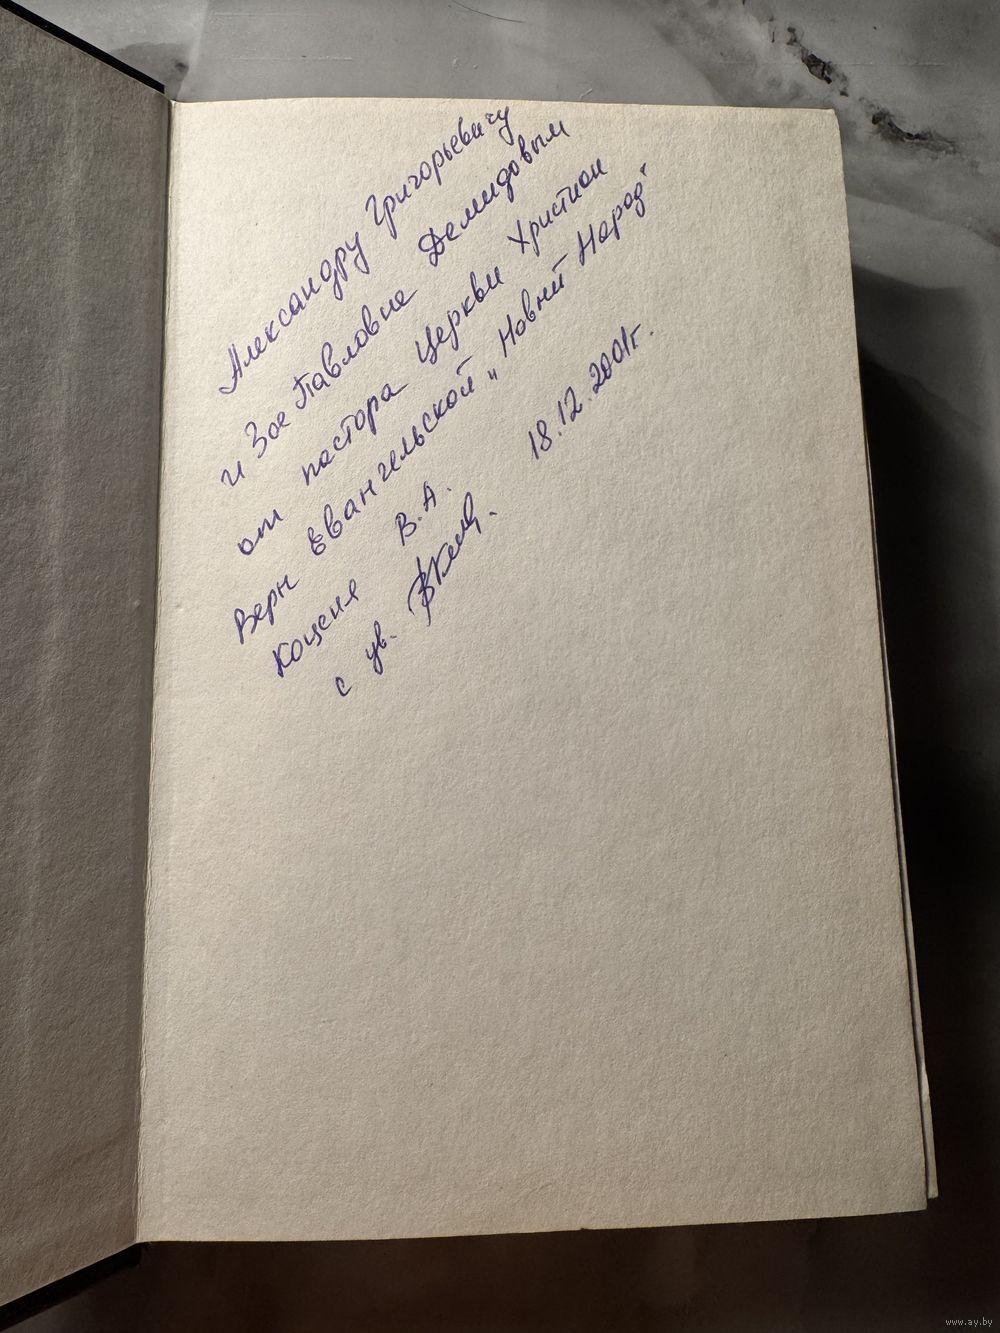 Александру Григорьевичу
и Зое Павловне Демидовым
от пастора Церкви Христиан
Веры Евангельской „Новый Народ"
Коценя В.А. 18.12.2001г.
с ув.
www.ay.by